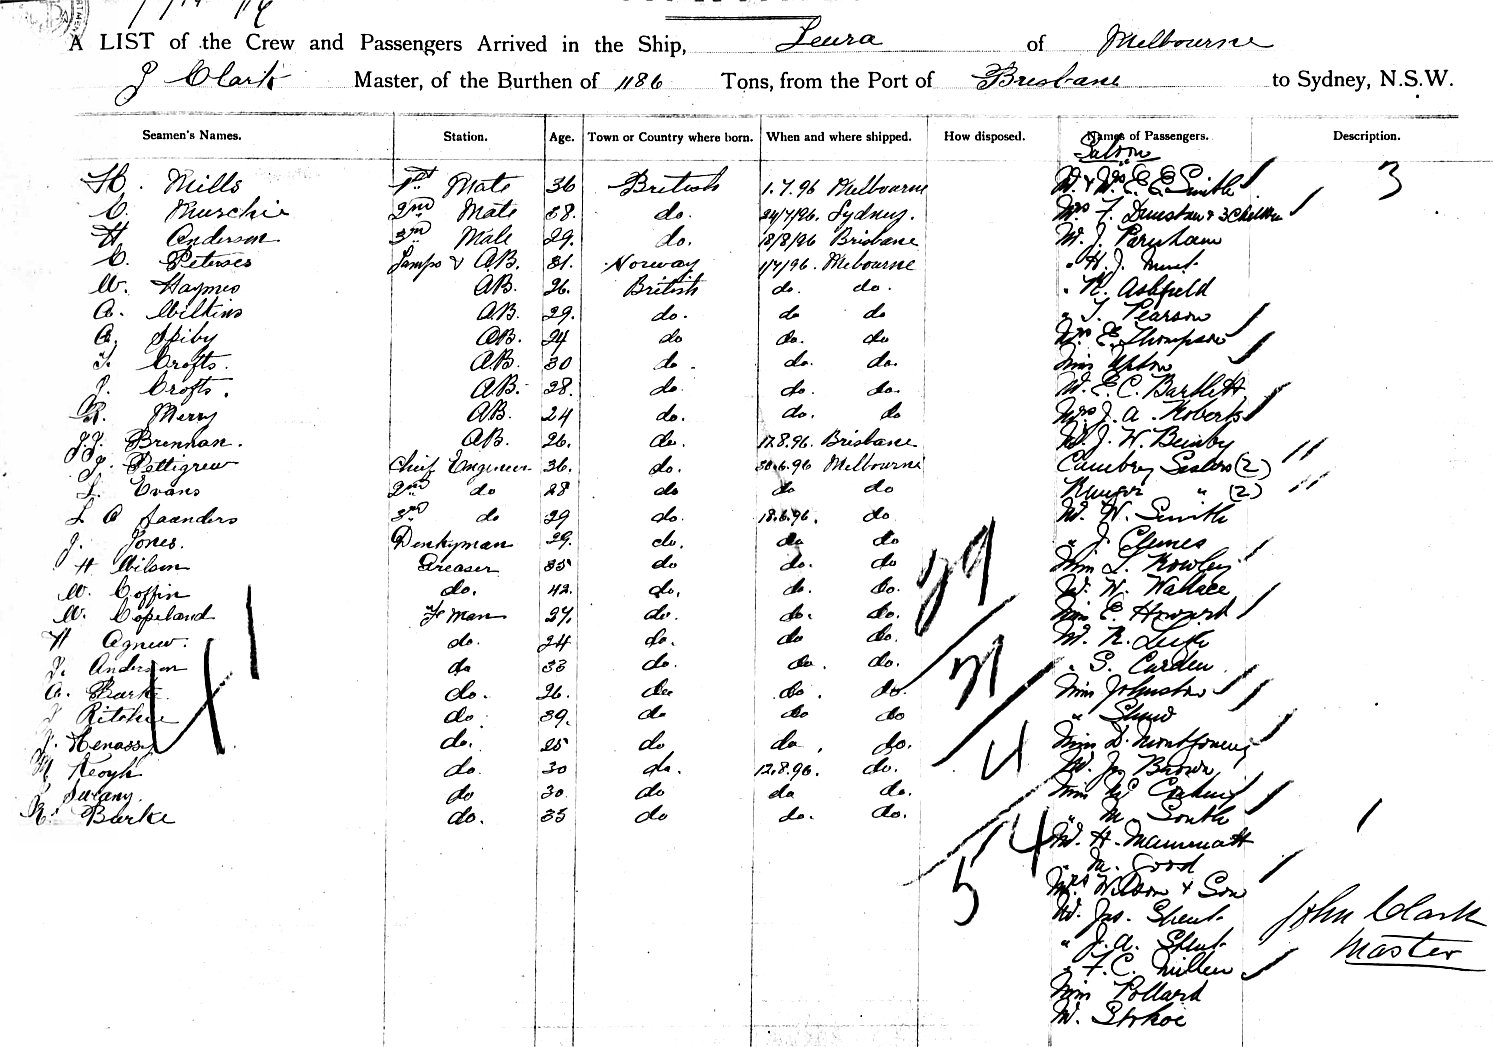 A LIST of the Crew and Passengers Arrived in the Ship, Leura of Melbourne
J Clark Master, of the Burthen of 1186 Tons, from the Port of Brisbane to Sydney, N.S.W.
Seamen's Names. Station. Age. Town or Country where born. When and where shipped. How disposed. Names of Passengers. Description.
Saloon
H. Mills 1st Mate 36 British 1.7.96 Melbourne M. & Mrs E. E. Smith 3
C. Murchie 2nd Mate 38. do. 24/7/96. Sydney. Mrs F. Dunstan & 3 Children
H Anderson 3rd Mate 29. do. 18/8/96 Brisbane M. J.
C. Peterses Lamps & AB. 31. Norway 1/7/96. Melbourne " H. J.
W. Haymes AB. 26. British do. do. " R. Ashfield
A. Wilkins AB. 29. do. do do " T. Pearson
A. Spiby AB. 24 do do. do Mrs E. Thompson
T. Crofts. AB. 30 do. do. do. Miss Upton
J. Crofts. AB. 28. do. do. do. M. E. C. Bartlett
R. Merry AB. 24 do. do. do Mrs J. A. Roberts
J.J. Brennan. AB. 26. do. 17.8.96. Brisbane M. J. W.
J. Pettigrew Chief Engineer 36. do. 30.6.96 Melbourne Sisters (2)
L. Evans 2nd do 28 do do do " (2)
L A Saunders 3rd do 29 do. 18.6.96. do M. W. Smith
J. Jones. Donkyman 29. do. do do " J. Clynes
H Wilson Greaser 35 do do. do Miss L. Rowley
W. Coffin do. 42. do. do. do. M. W. Wallace
W. Copeland F man 27. do. do. do. Miss E. Howard
H Agnew. do. 24 do. do do. M. R. Leigh
J. Anderson do 33 do. do. do. " S. Carden
A. Barke do. 26. do do. do. Miss Johnston
J Ritchie do. 39. do do do " Shaw
J. Henassy do. 25 do do. do. Miss D. Montgomery
M Keogh do. 30 do. 12.8.96. do. M. Jas Brown
Sweeny do 30. do do do. Miss M
R. Barke do. 35 do do. do. " M. South
M. H.
" M. Good
Mrs Wilson & Son
M. Jas. Spent
" J. A. Spent
" F. C. Miller
Miss Pollard
M. Stokoe
41
29
31
4
54
5
John Clark
Master